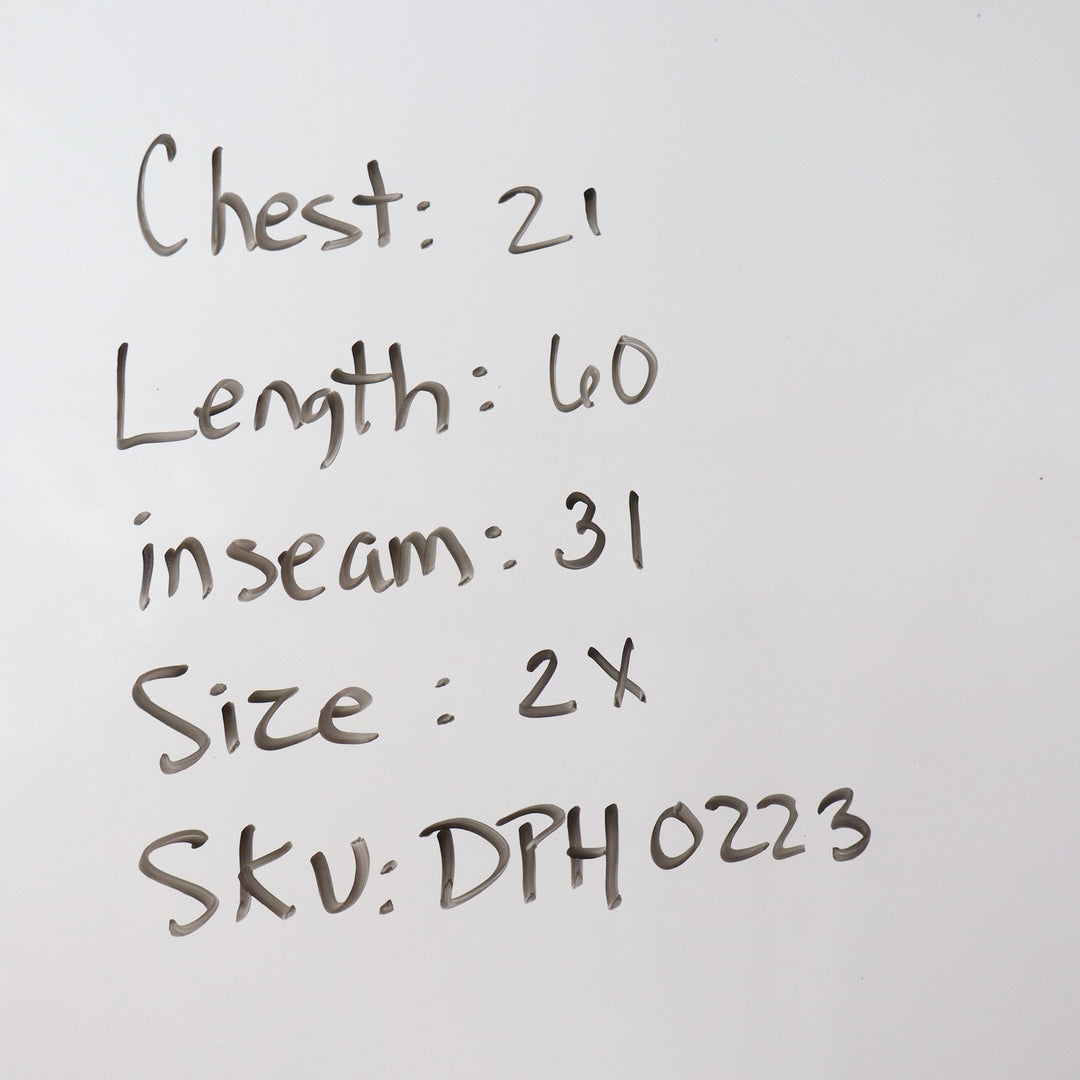 Chest: 21
Length: 60
inseam: 31
Size: 2X
SKU: DPH0223